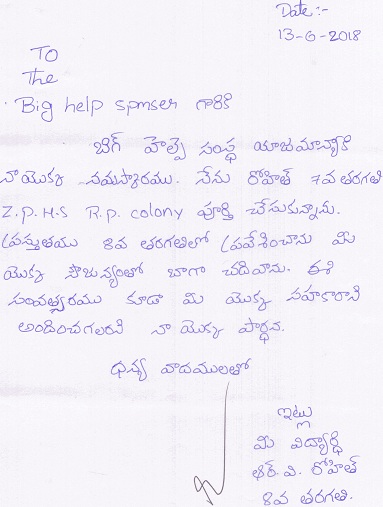 Date:-
13-6-2018
TO
The
Big help spmser గారికి
బిగ్ హెల్ప్ సంస్థ యాజమాన్యానికి
నాయొక్క నమస్కారము. నేను రోహిత్ 7వ తరగతి
Z.P.H.S R.p. colony పూర్తి చేసుకున్నాను.
ప్రస్తుతము 8వ తరగతిలో ప్రవేశించాను మి
యొక్క సౌజన్యంతో బాగా చదివాను. ఈ
సంవత్సరము కూడా మి యొక్క సహకారాని
అందించగలరని నా యొక్క పార్ధన.
ధన్య వాదములతో
ఇట్లు
మి విద్యార్థి
ఆర్. వి. రోహిత్
8వ తరగతి.